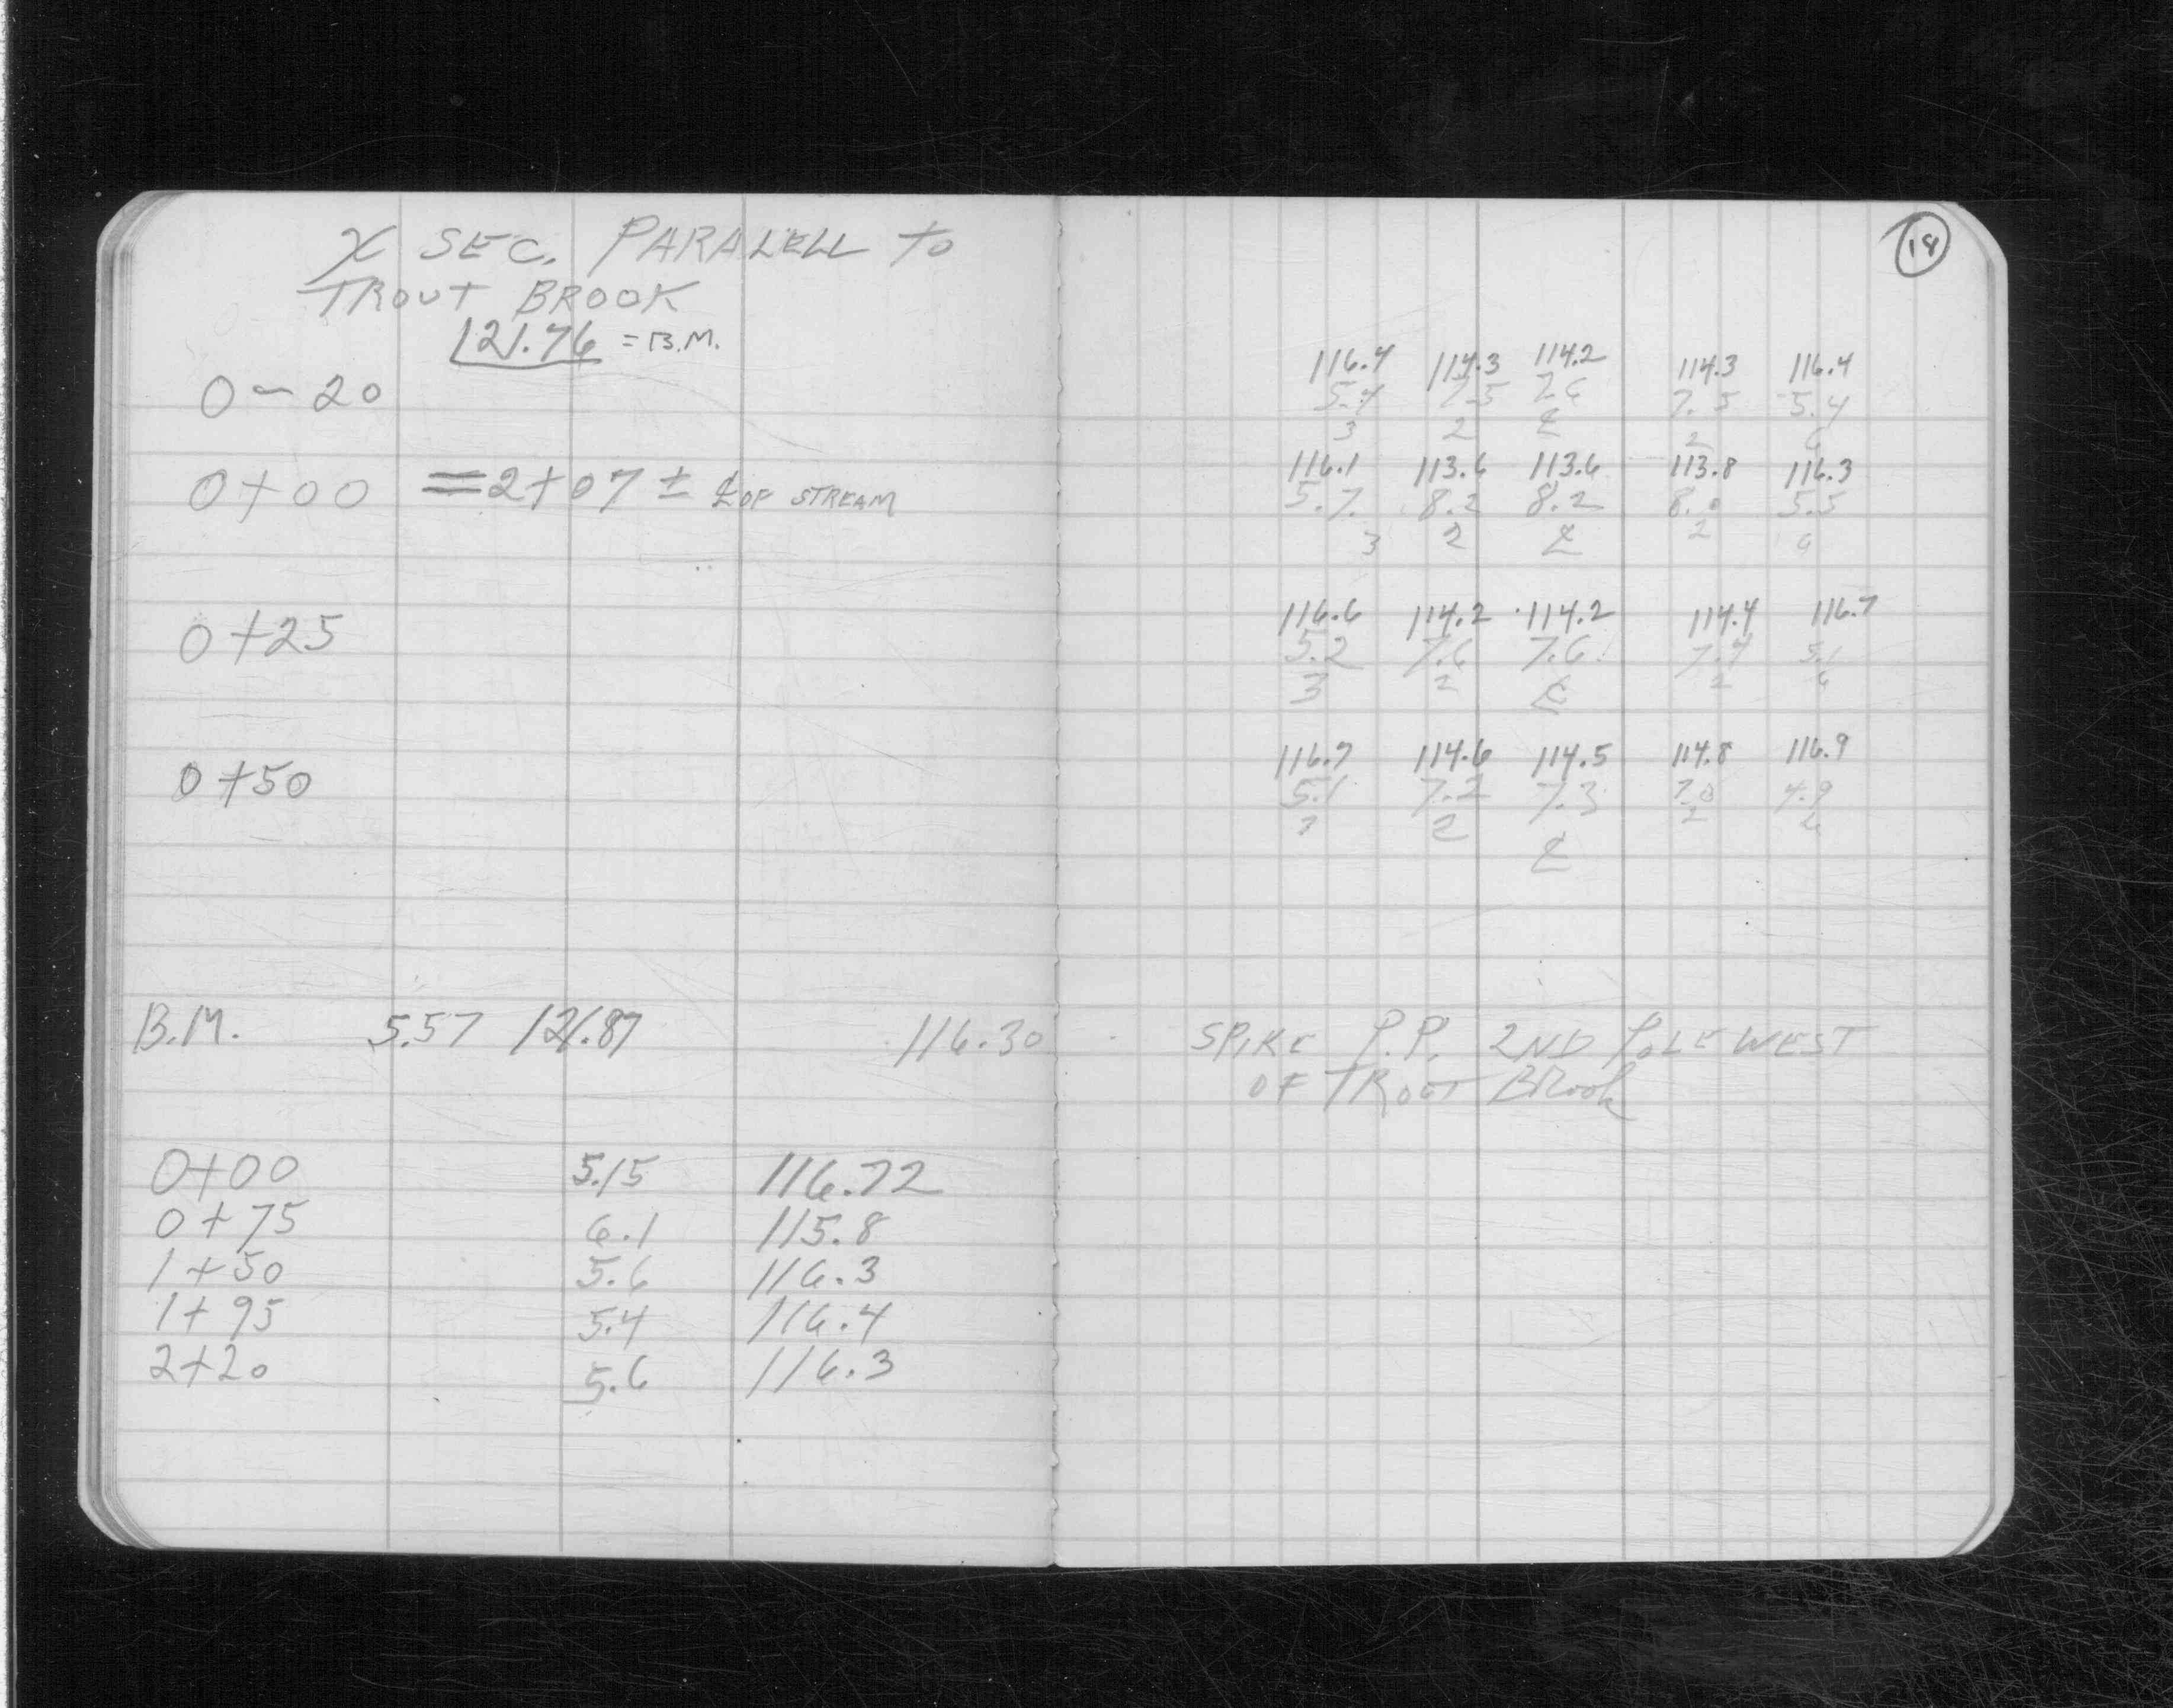 X SEC. PARALELL to
TROUT BROOK
121.76 = B.M.
0-20
0+00 = 2+07 ± ℄ OF STREAM
0+25
0+50
B.M. 5.57 121.87 116.30
0+00 5.15 116.72
0+75 6.1 115.8
1+50 5.6 116.3
1+95 5.4 116.4
2+20 5.6 116.3
18
116.4 114.3 114.2 114.3 116.4
5.4 7.5 7.6 7.5 5.4
3 2 ℄ 2 6
116.1 113.6 113.6 113.8 116.3
5.7 8.2 8.2 8.0 5.5
3 2 ℄ 2 6
116.6 114.2 114.2 114.4 116.7
5.2 7.6 7.6 7.4 5.1
3 2 ℄ 2 6
116.7 114.6 114.5 114.8 116.9
5.1 7.2 7.3 7.0 4.9
2 ℄ 2 6
SPIKE P.P. 2ND POLE WEST
OF TROUT BROOK